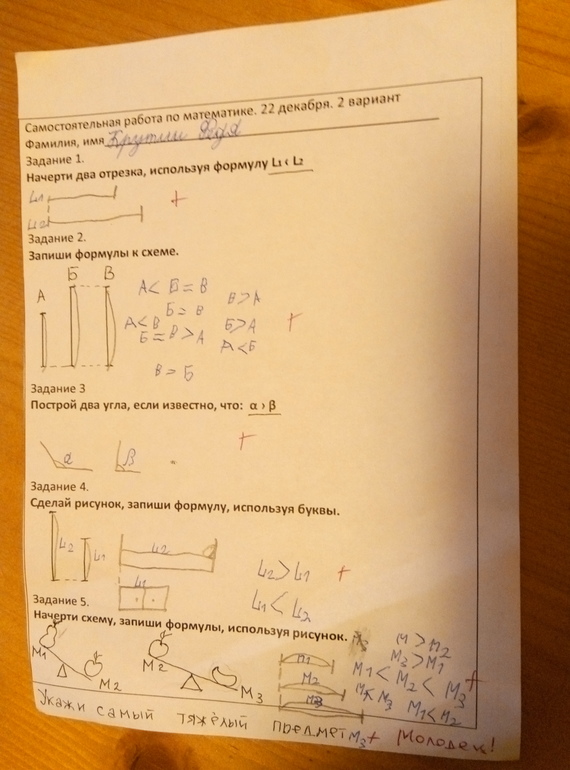 Самостоятельная работа по математике. 22 декабря. 2 вариант
Фамилия, имя
Задание 1.
Начерти два отрезка, используя формулу L₁ ‹ L₂
L₁
L₂
Задание 2.
Запиши формулы к схеме.
А Б В
А < Б = В
В > А
Б = В
А < В
Б > А
Б = В > А
А < Б
В = Б
Задание 3
Построй два угла, если известно, что: α › β
α β
Задание 4.
Сделай рисунок, запиши формулу, используя буквы.
L₂ L₁ L₂
L₁
L₂ > L₁
L₁ < L₂
Задание 5.
Начерти схему, запиши формулы, используя рисунок.
М₁ М₂ М₂ М₃
М₁
М₂
М₃
М₃ > М₁
М₁ < М₂ < М₃
М₁ < М₂
Укажи самый тяжёлый предмет М₃ + Молодец!